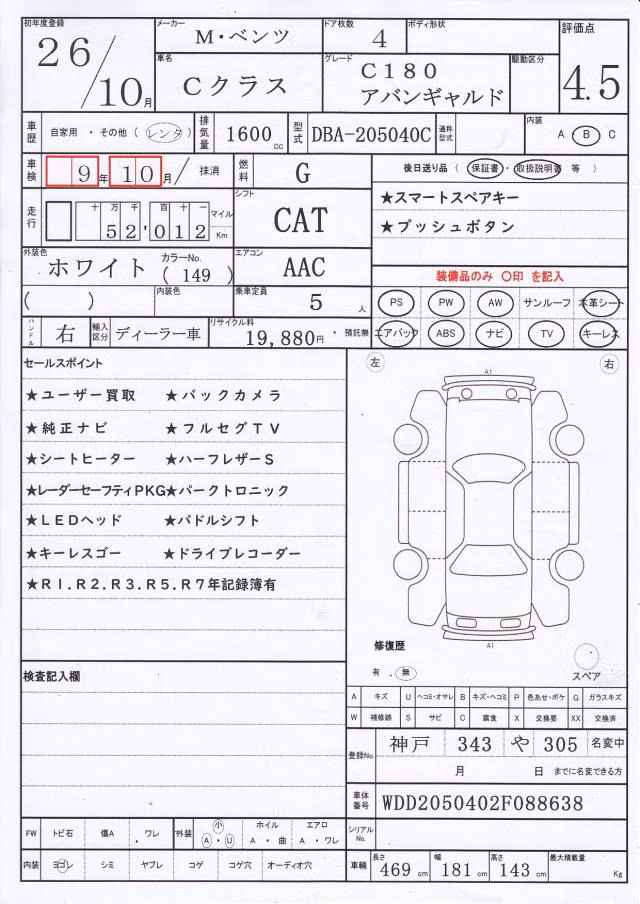 初年度登録 26/10月 メーカー M・ベンツ ドア枚数 4 ボディ形状 評価点 4.5
車名 Cクラス グレード C180 アバンギャルド 駆動区分
車歴 自家用 ・ その他 ( レンタ ) 排気量 1600 cc 型式 DBA-205040C 通称型式 内装 A B C
車検 9年 10月 / 抹消 燃料 G 後日送り品 ( 保証書・取扱説明書 等 )
走行 十 万 千 百 十 一 52,012 マイル Km シフト CAT
★スマートスペアキー
★プッシュボタン
外装色 ホワイト カラーNo. ( 149 ) エアコン AAC
装備品のみ 〇印 を記入
( ) 内装色 乗車定員 5 人
PS PW AW サンルーフ 本革シート
エアバック ABS ナビ TV キーレス
ハンドル 右 輸入区分 ディーラー車 リサイクル料 19,880円 * 預託無
セールスポイント
★ユーザー買取 ★バックカメラ
★純正ナビ ★フルセグTV
★シートヒーター ★ハーフレザーS
★レーダーセーフティPKG★パークトロニック
★LEDヘッド ★パドルシフト
★キーレスゴー ★ドライブレコーダー
★R1.R2.R3.R5.R7年記録簿有
左 右
A1
A1
修復歴
有 . 無
スペア
検査記入欄
A キズ U ヘコミ・オサレ B キズ・ヘコミ P 色あせ・ボケ G ガラスキズ
W 補修跡 S サビ C 腐食 X 交換要 XX 交換済
登録No. 神戸 343 や 305 名変中
月 日 までに名変できる方
車体番号 WDD2050402F088638
シリアルNo.
FW トビ石 傷A ・ ワレ 外装 小 A ・ U ホイル A ・ 曲 エアロ A ・ ワレ
内装 ヨゴレ シミ ヤブレ コゲ コゲ穴 オーディオ穴
車輌 長さ 469 cm 幅 181 cm 高さ 143 cm 最大積載量 Kg